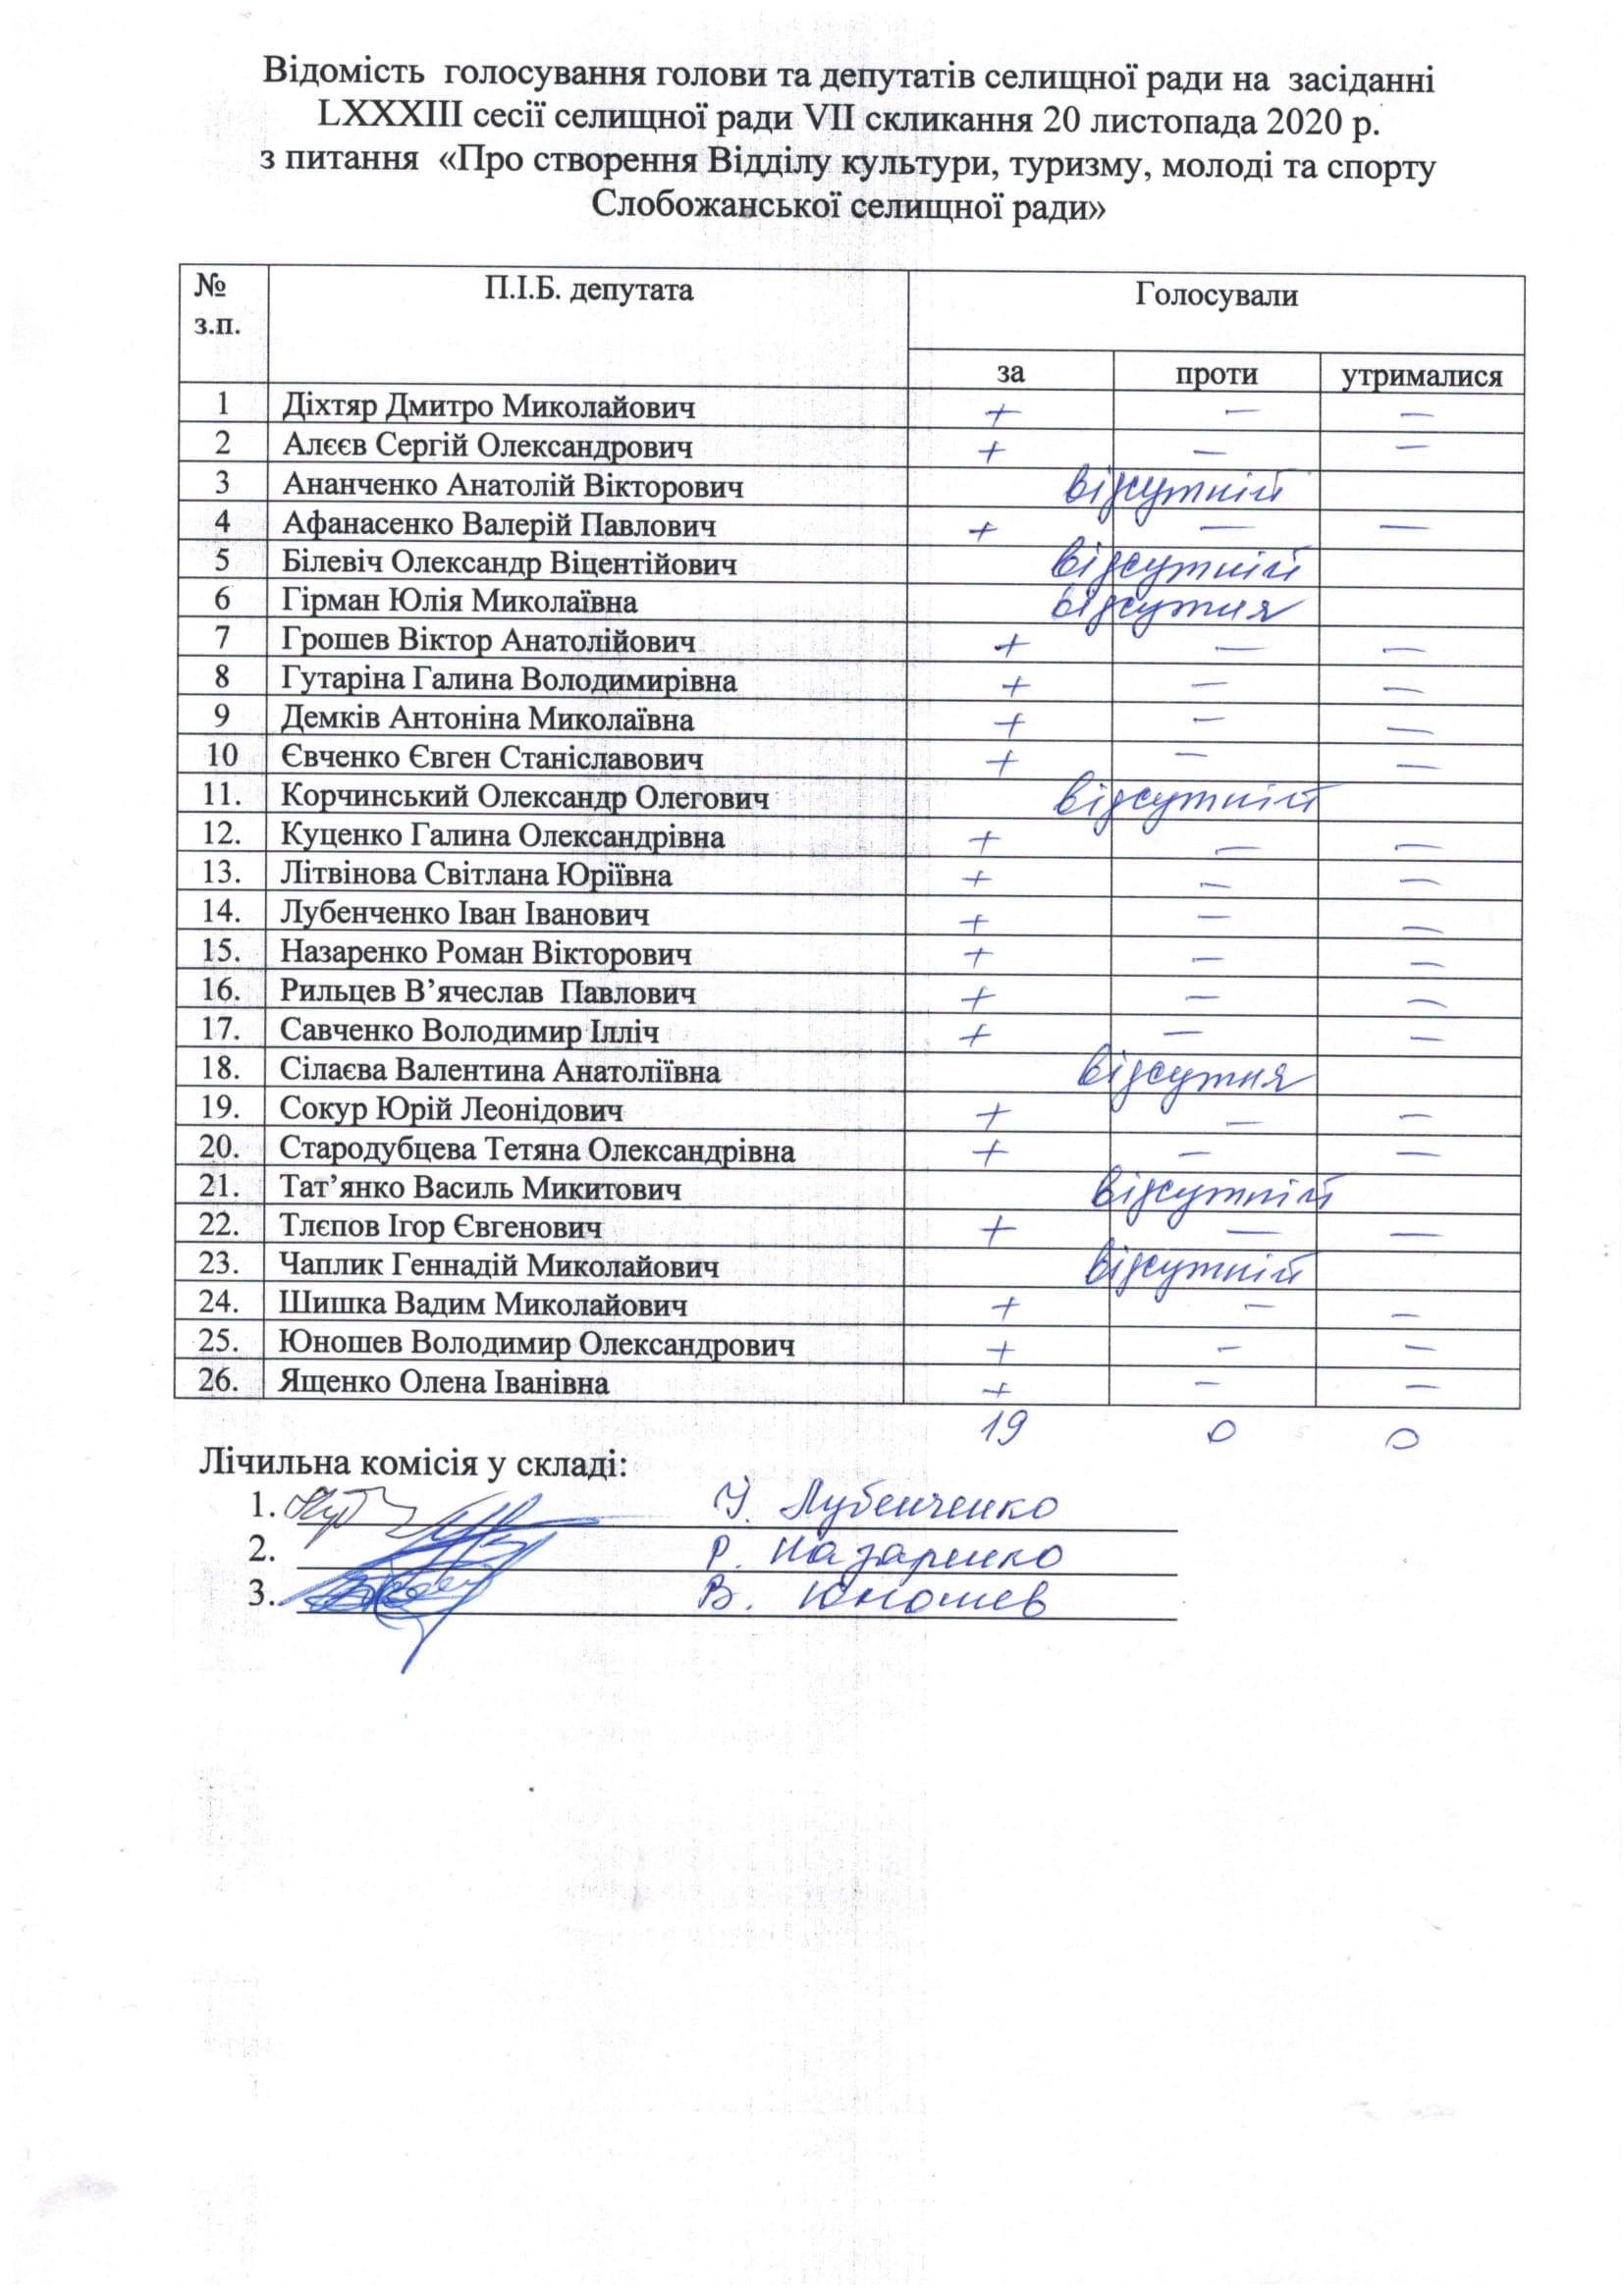 Відомість голосування голови та депутатів селищної ради на засіданні
LXXXIII сесії селищної ради VII скликання 20 листопада 2020 р.
з питання «Про створення Відділу культури, туризму, молоді та спорту
Слобожанської селищної ради»
№ з.п. П.І.Б. депутата Голосували
за проти утрималися
1 Діхтяр Дмитро Миколайович + — —
2 Алєєв Сергій Олександрович + — —
3 Ананченко Анатолій Вікторович відсутній
4 Афанасенко Валерій Павлович + — —
5 Білевіч Олександр Віцентійович відсутній
6 Гірман Юлія Миколаївна відсутня
7 Грошев Віктор Анатолійович + — —
8 Гутаріна Галина Володимирівна + — —
9 Демків Антоніна Миколаївна + — —
10 Євченко Євген Станіславович + — —
11. Корчинський Олександр Олегович відсутній
12. Куценко Галина Олександрівна + — —
13. Літвінова Світлана Юріївна + — —
14. Лубенченко Іван Іванович + — —
15. Назаренко Роман Вікторович + — —
16. Рильцев В’ячеслав Павлович + — —
17. Савченко Володимир Ілліч + — —
18. Сілаєва Валентина Анатоліївна відсутня
19. Сокур Юрій Леонідович + — —
20. Стародубцева Тетяна Олександрівна + — —
21. Тат’янко Василь Микитович відсутній
22. Тлєпов Ігор Євгенович + — —
23. Чаплик Геннадій Миколайович відсутній
24. Шишка Вадим Миколайович + — —
25. Юношев Володимир Олександрович + — —
26. Ященко Олена Іванівна + — —
19 0 0
Лічильна комісія у складі:
1. І. Лубенченко
2. Р. Назаренко
3. В. Юношев